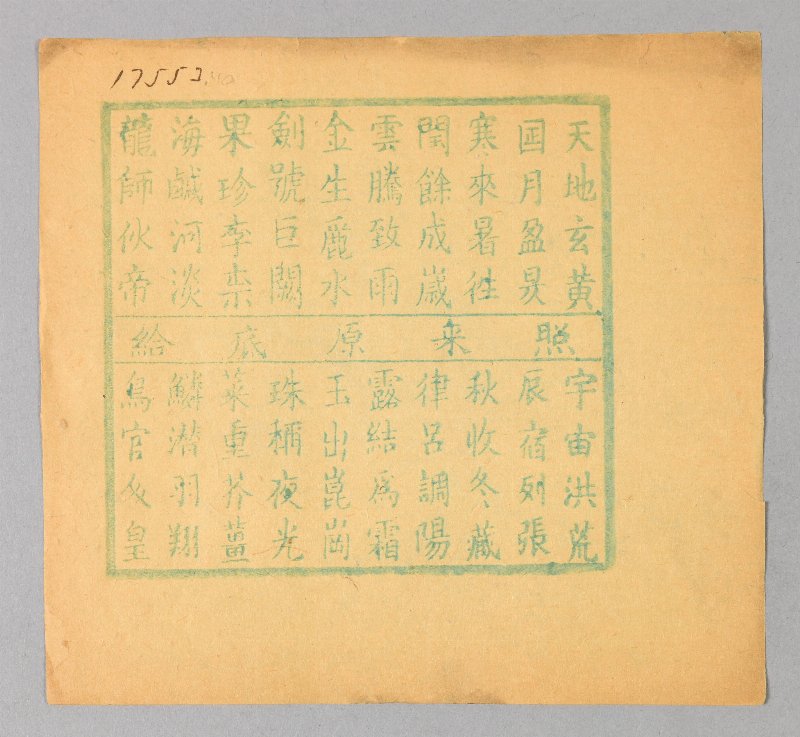 天地玄黃
囯月盈昃
寒來暑往
閏餘成歲
雲騰致雨
金生麗水
劍號巨闕
果珍李柰
海鹹河淡
龍師伙帝
照来原底給
宇宙洪荒
辰宿列張
秋收冬藏
律呂調陽
露結為霜
玉出崑崗
珠稱夜光
菜重芥薑
鱗潛羽翔
鳥官皇